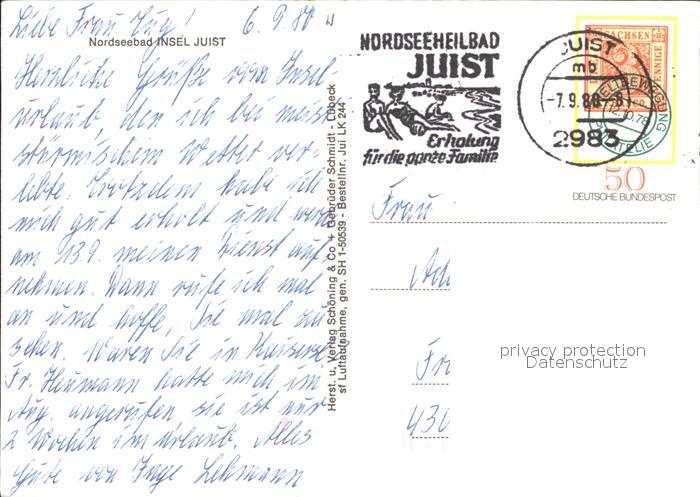 Liebe Frau Zug! 6.9.80
Nordseebad INSEL JUIST
Herzliche Grüße vom Insel-
urlaub, den ich bei meist
stürmischem Wetter ver-
lebte. Trotzdem habe ich
mich gut erholt und werde
am 13.9. meinen Dienst auf-
nehmen. Dann rufe ich mal
an und hoffe, Sie mal zu
sehen. Waren Sie in
Fr. Heumann hatte mich im
Aug. angerufen sie ist nur
2 Wochen im Urlaub. Alles
Gute von Inge Lehmann
Herst. u. Verlag Schöning & Co + Gebrüder Schmidt - Lübeck
sf Luftaufnahme, gen. SH 1-50539 - Bestellnr. Jui LK 244
NORDSEEHEILBAD
JUIST
Erholung
für die ganze Familie
JUIST
mb
-7.9.80
2983
SACHSEN
PFENNIGE
WELTBEWEGUNG
PHILATELIE
50
DEUTSCHE BUNDESPOST
Frau
Fr
430
privacy protection
Datenschutz